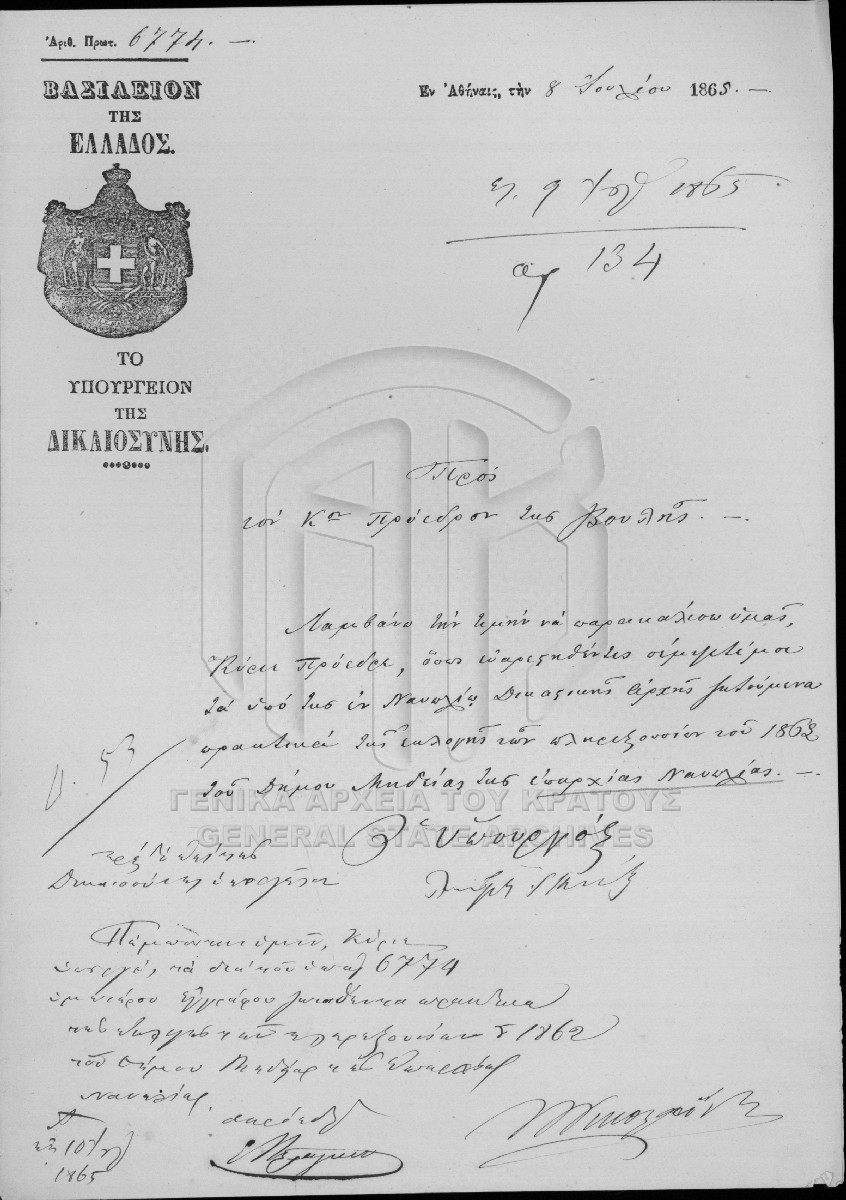 Ἀριθ. Πρωτ. 6774. —
ΒΑΣΙΛΕΙΟΝ
ΤΗΣ
ΕΛΛΑΔΟΣ.
ΤΟ
ΥΠΟΥΡΓΕΙΟΝ
ΤΗΣ
ΔΙΚΑΙΟΣΥΝΗΣ.
Ἐν Ἀθήναις, τὴν 8 Ἰουλίου 1865. —
9 Ἰουλ 1865
αρ 134
Πρὸς
τὸν Κον Πρόεδρον τῆς Βουλῆς. —
Λαμβάνω τὴν τιμὴν νὰ παρακαλέσω ὑμᾶς,
Κύριε Πρόεδρε, ὅπως εὐαρεστηθέντες πέμψητέ μοι
τὰ ὑπὸ τῆς ἐν Ναυπλίῳ Δικαστικῆς Ἀρχῆς ζητούμενα
πρακτικὰ τῆς ἐκλογῆς τῶν πληρεξουσίων τοῦ 1862
τοῦ Δήμου Μηδείας τῆς ἐπαρχίας Ναυπλίας. —
ΓΕΝΙΚΑ ΑΡΧΕΙΑ ΤΟΥ ΚΡΑΤΟΥΣ
GENERAL STATE ARCHIVES
Ὁ Ὑπουργὸς
Δικαιοσύνης
Πέμπονται ὑμῖν, Κύριε
Ὑπουργέ, τὰ διὰ τοῦ ὑπ' ἀρ 6774
ἐγγράφου ζητηθέντα πρακτικὰ
τῆς ἐκλογῆς τῶν πληρεξουσίων 1862
τοῦ Δήμου τῆς Ἐπαρχίας
Ναυπλίας.
10 Ἰουλ
1865